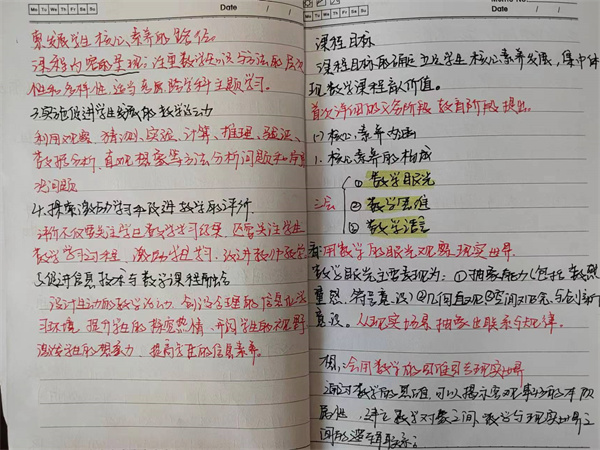 Mo Tu We Th Fr Sa Su
Date / /
展学生核心素养的路径。
课程内容的呈现:注重数学知识与方法的层次
性和多样性,适当考虑跨学科主题学习。
3.实施促进学生发展的教学活动
利用观察、猜测、实验、计算、推理、验证、
数据分析、直观想象等方法分析问题和解
决问题
4.探索激励学习和改进教学的评价
评价不仅要关注学生数学学习结果,还要关注学生
数学学习过程,激励学生学习,改进教师教学
5.促进信息技术与数学课程融合
设计生动的教学活动,创设合理的信息化学
习环境,提升学生的探究热情,开阔学生的视野
激发学生的想象力,提高学生的信息素养。
Mo Tu We Th Fr Sa Su
Memo No.
Date / /
课程目标
课程目标的确定,立足学生核心素养发展,集中体
现数学课程育人价值。
首次评价的义务阶段教育阶段提出
(一)核心素养内涵
1.核心素养的构成
三会
① 数学眼光
② 数学思维
③ 数学语言
看:用数学的眼光观察现实世界
数学眼光主要表现为:①抽象能力(包括数感
量感、符号意识)②几何直观③空间观念与创新
意识。从现实场景抽象出联系与规律。
想:会用数学的思维思考现实世界
通过数学的思维,可以揭示客观事物的本质
属性,建立数学对象之间、数学与现实世界之
间的逻辑联系;